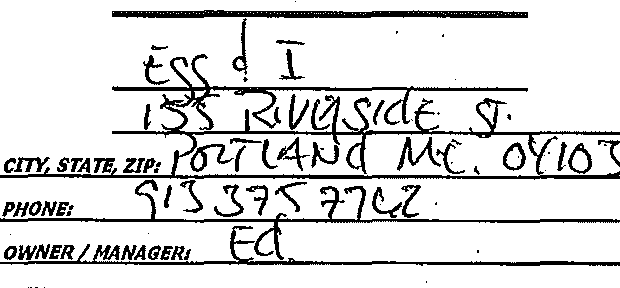 Egg & I
155 Riverside St.
CITY, STATE, ZIP: Portland ME. 04103
PHONE: 913 375 7762
OWNER / MANAGER: Ed